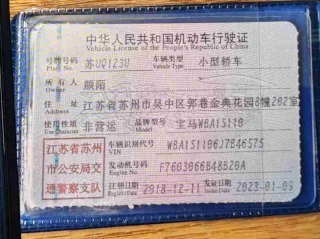 中华人民共和国机动车行驶证
Vehicle License of the People's Republic of China
号牌号码 苏UQ123U 车辆类型 小型轿车
Plate No. Vehicle Type
所有人 颜陌
Owner
住址 江苏省苏州市吴中区郭巷金典花园8幢202室
Address
使用性质 非营运 品牌型号 宝马WBA1S110
Use Character Model
江苏省苏州
市公安局交
通警察支队
车辆识别代号 WBA1S1106J7B46575
VIN
发动机号码 F7603066B48B20A
Engine No.
注册日期 2018-12-11 发证日期 2023-01-09
Register Date Issue Date